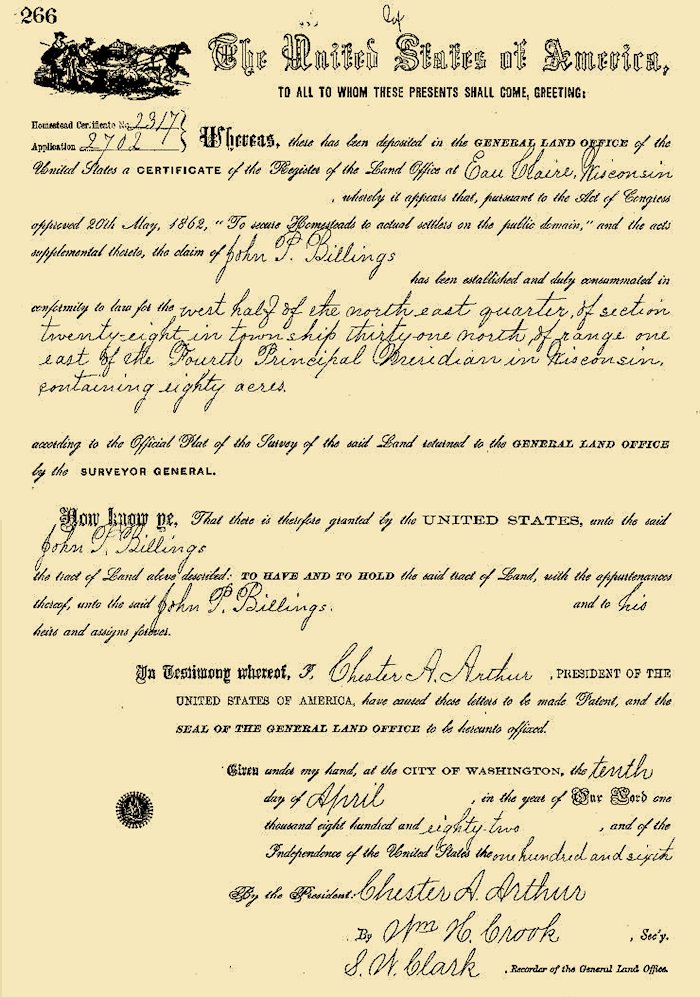 266
The United States of America,
TO ALL TO WHOM THESE PRESENTS SHALL COME, GREETING:
Homestead Certificate No. 2317
Application 2702
Whereas, there has been deposited in the GENERAL LAND OFFICE of the
United States a CERTIFICATE of the Register of the Land Office at Eau Claire, Wisconsin
, whereby it appears that, pursuant to the Act of Congress
approved 20th May, 1862, "To secure Homesteads to actual settlers on the public domain," and the acts
supplemental thereto, the claim of John P. Billings
has been established and duly consummated in
conformity to law for the west half of the north east quarter, of section
twenty-eight, in township thirty-one north, of range one
east of the Fourth Principal Meridian in Wisconsin,
containing eighty acres.
according to the Official Plat of the Survey of the said Land returned to the GENERAL LAND OFFICE
by the SURVEYOR GENERAL.
Now know ye, That there is therefore granted by the UNITED STATES, unto the said
John P. Billings
the tract of Land above described: TO HAVE AND TO HOLD the said tract of Land, with the appurtenances
thereof, unto the said John P. Billings. and to his
heirs and assigns forever.
In Testimony whereof, I, Chester A. Arthur, PRESIDENT OF THE
UNITED STATES OF AMERICA, have caused these letters to be made Patent, and the
SEAL OF THE GENERAL LAND OFFICE to be hereunto affixed.
Given under my hand, at the CITY OF WASHINGTON, the tenth
day of April, in the year of Our Lord one
thousand eight hundred and eighty-two, and of the
Independence of the United States the one hundred and sixth
By the President: Chester A. Arthur
By Wm H. Crook, Sec'y.
S. W. Clark, Recorder of the General Land Office.